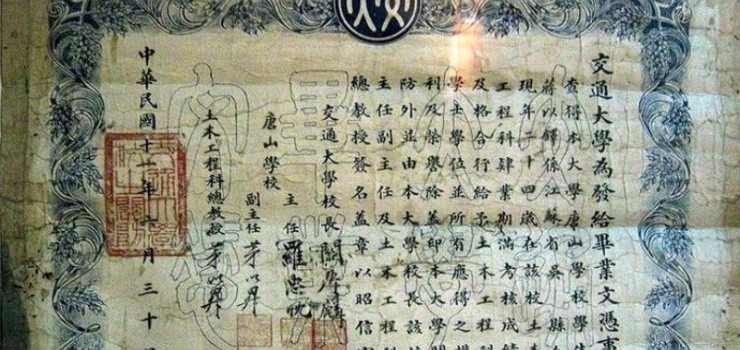 交通大學為發給畢業文憑事
查得本大學唐山學校學生
蔣以鐸係江蘇省吳縣人
現年二十四歲在該校土木
工程科肄業期滿考核成績
及格合行給予土木工程科
學士學位並所有應得之權
利及榮譽除蓋印本大學關
防外並由本大學校長該校
主任副主任及土木工程科
總教授簽名蓋章以昭信守
交通大學校長
唐山學校
主任 羅忠忱
副主任 茅以昇
土木工程科總教授 茅以昇
中華民國十一年六月三十日